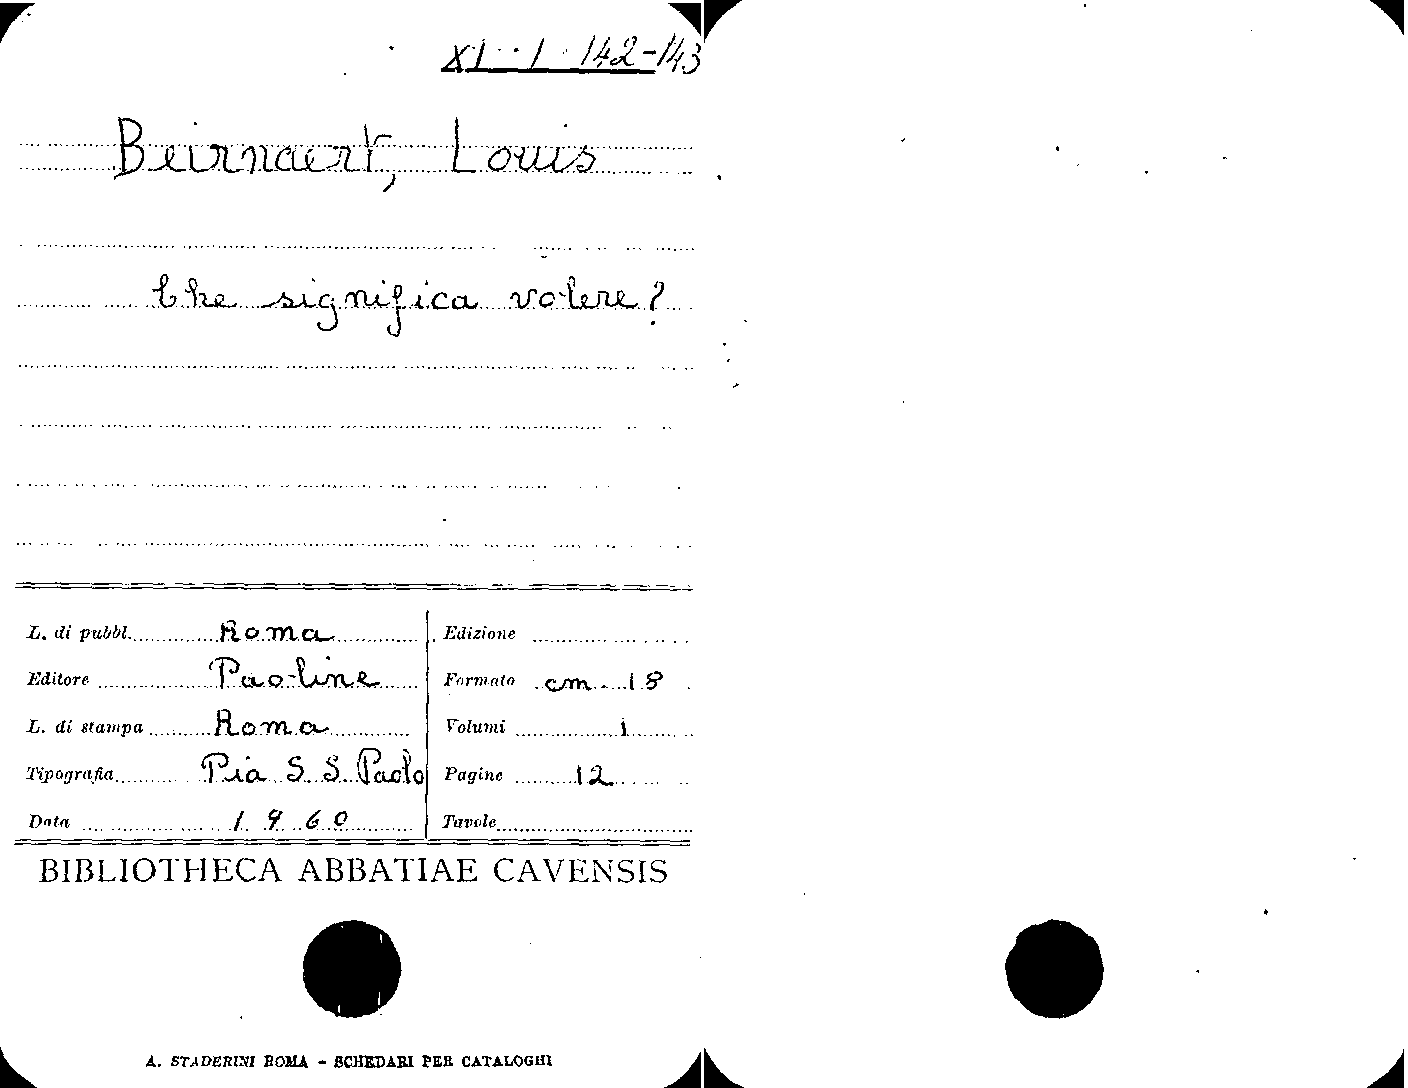 XI · 1 · 142-143
Beirnaert, Louis
Che significa volere?
L. di pubbl. Roma
Edizione
Editore Paoline
Formato cm. 18
L. di stampa Roma
Volumi 1
Tipografia Pia S. S. Paolo
Pagine 12
Data 1960
Tavole
BIBLIOTHECA ABBATIAE CAVENSIS
A. STADERINI ROMA - SCHEDARI PER CATALOGHI